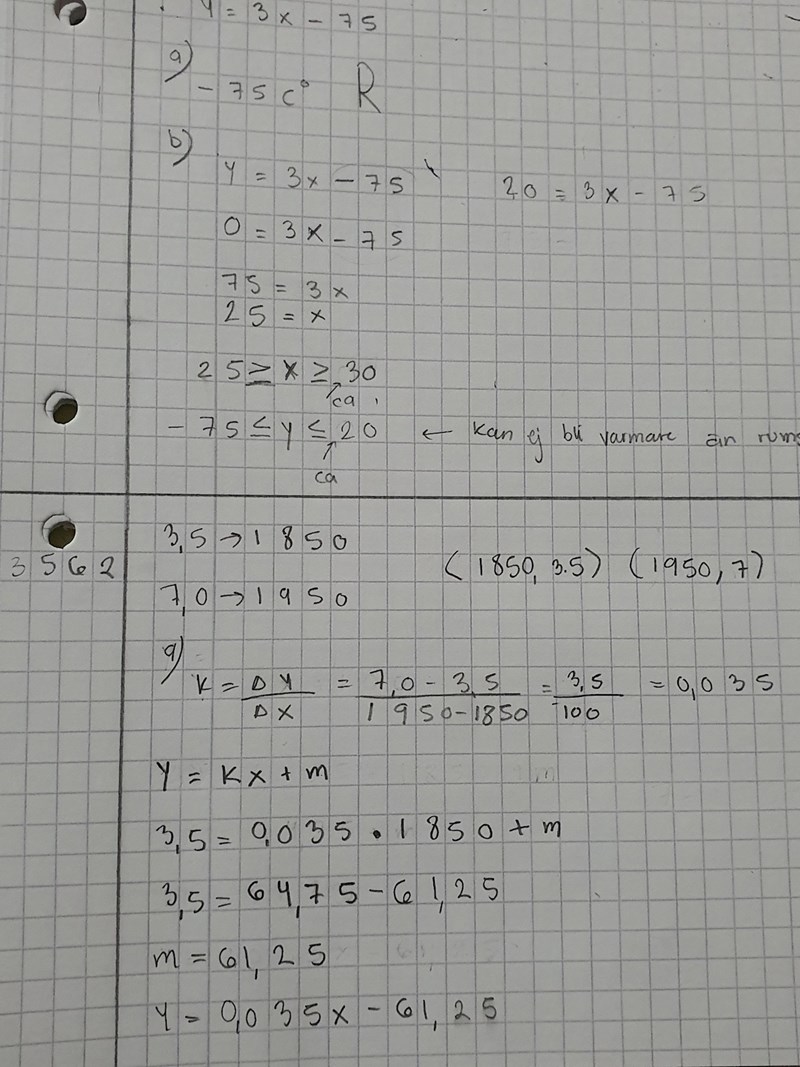 Y = 3x - 75
a)
- 75 c° R
b)
Y = 3x - 75 20 = 3x - 75
0 = 3x - 75
75 = 3x
25 = x
25 ≥ x ≥ 30
ca
- 75 ≤ y ≤ 20 ← Kan ej bli varmare än rums
ca
3,5 → 1850
3562 (1850, 3.5) (1950, 7)
7,0 → 1950
a)
K = ΔY/ΔX = 7,0 - 3,5/1950-1850 = 3,5/100 = 0,035
Y = Kx + m
3,5 = 0,035 • 1850 + m
3,5 = 64,75 - 61,25
m = 61,25
Y = 0,035x - 61,25